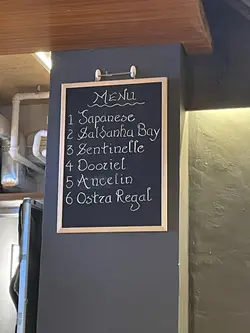 MENU
1 Japanese
2 Saldanha Bay
3 Sentinelle
4 Dooriel
5 Ancelin
6 Ostra Regal